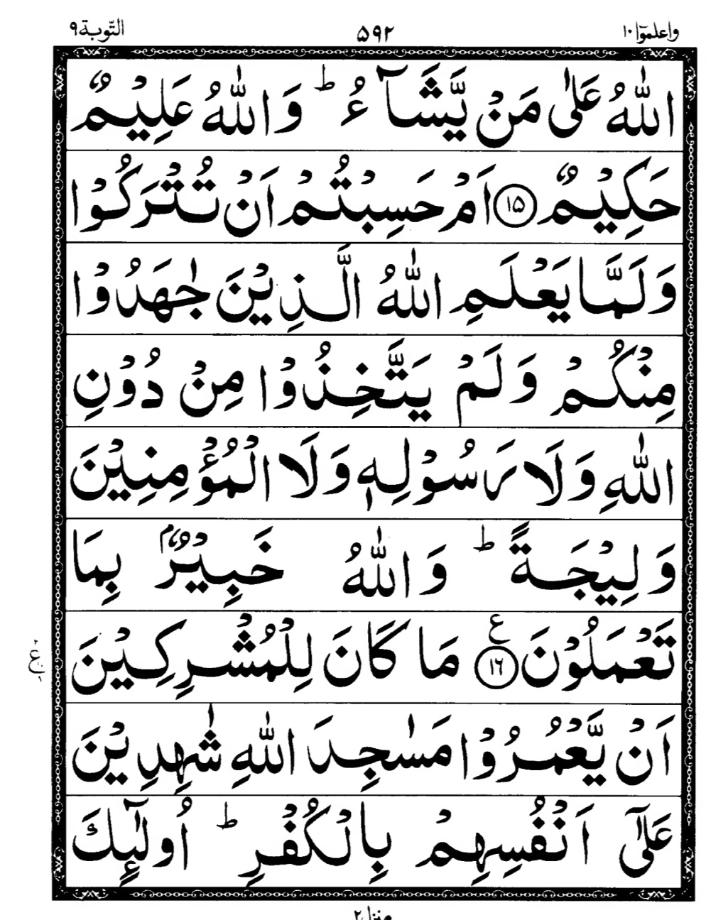 واعلموٓا ١٠ ۵۹۲ التّوبة ٩
اللّٰهُ عَلٰى مَنْ يَّشَآءُ ؕ وَاللّٰهُ عَلِيْمٌ
حَكِيْمٌ ۝۱۵ اَمْ حَسِبْتُمْ اَنْ تُتْرَكُوْا
وَلَمَّا يَعْلَمِ اللّٰهُ الَّذِيْنَ جٰهَدُوْا
مِنْكُمْ وَلَمْ يَتَّخِذُوْا مِنْ دُوْنِ
اللّٰهِ وَلَا رَسُوْلِهٖ وَلَا الْمُؤْمِنِيْنَ
وَلِيْجَةً ؕ وَاللّٰهُ خَبِيْرٌۢ بِمَا
تَعْمَلُوْنَ ۝۱۶ ع مَا كَانَ لِلْمُشْرِكِيْنَ
اَنْ يَّعْمُرُوْا مَسٰجِدَ اللّٰهِ شٰهِدِيْنَ
عَلٰٓى اَنْفُسِهِمْ بِالْكُفْرِ ؕ اُولٰٓئِكَ
منزل ۲